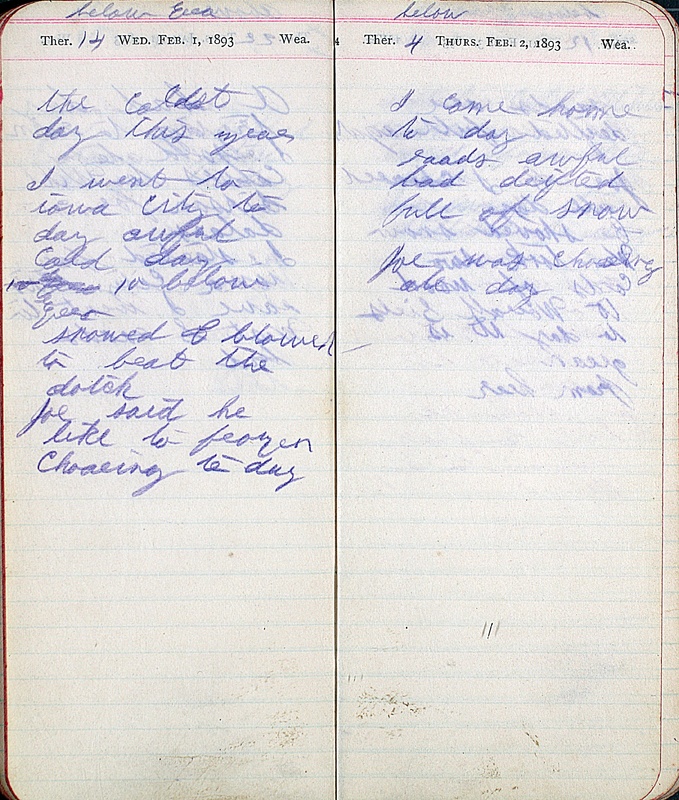 below
Ther. 14 WED. FEB. 1, 1893 Wea.
the Coldst
day this year
I went to
iowa City to
day awful
Cold day
10 below
zero
snowed & blowed
to beat the
dotch
Joe said he
like to frozen
Choaring to day
below
Ther. 4 THURS. FEB. 2, 1893 Wea.
I come home
to day
roads awful
bad drifted
full of snow
Joe was Choaring
all day